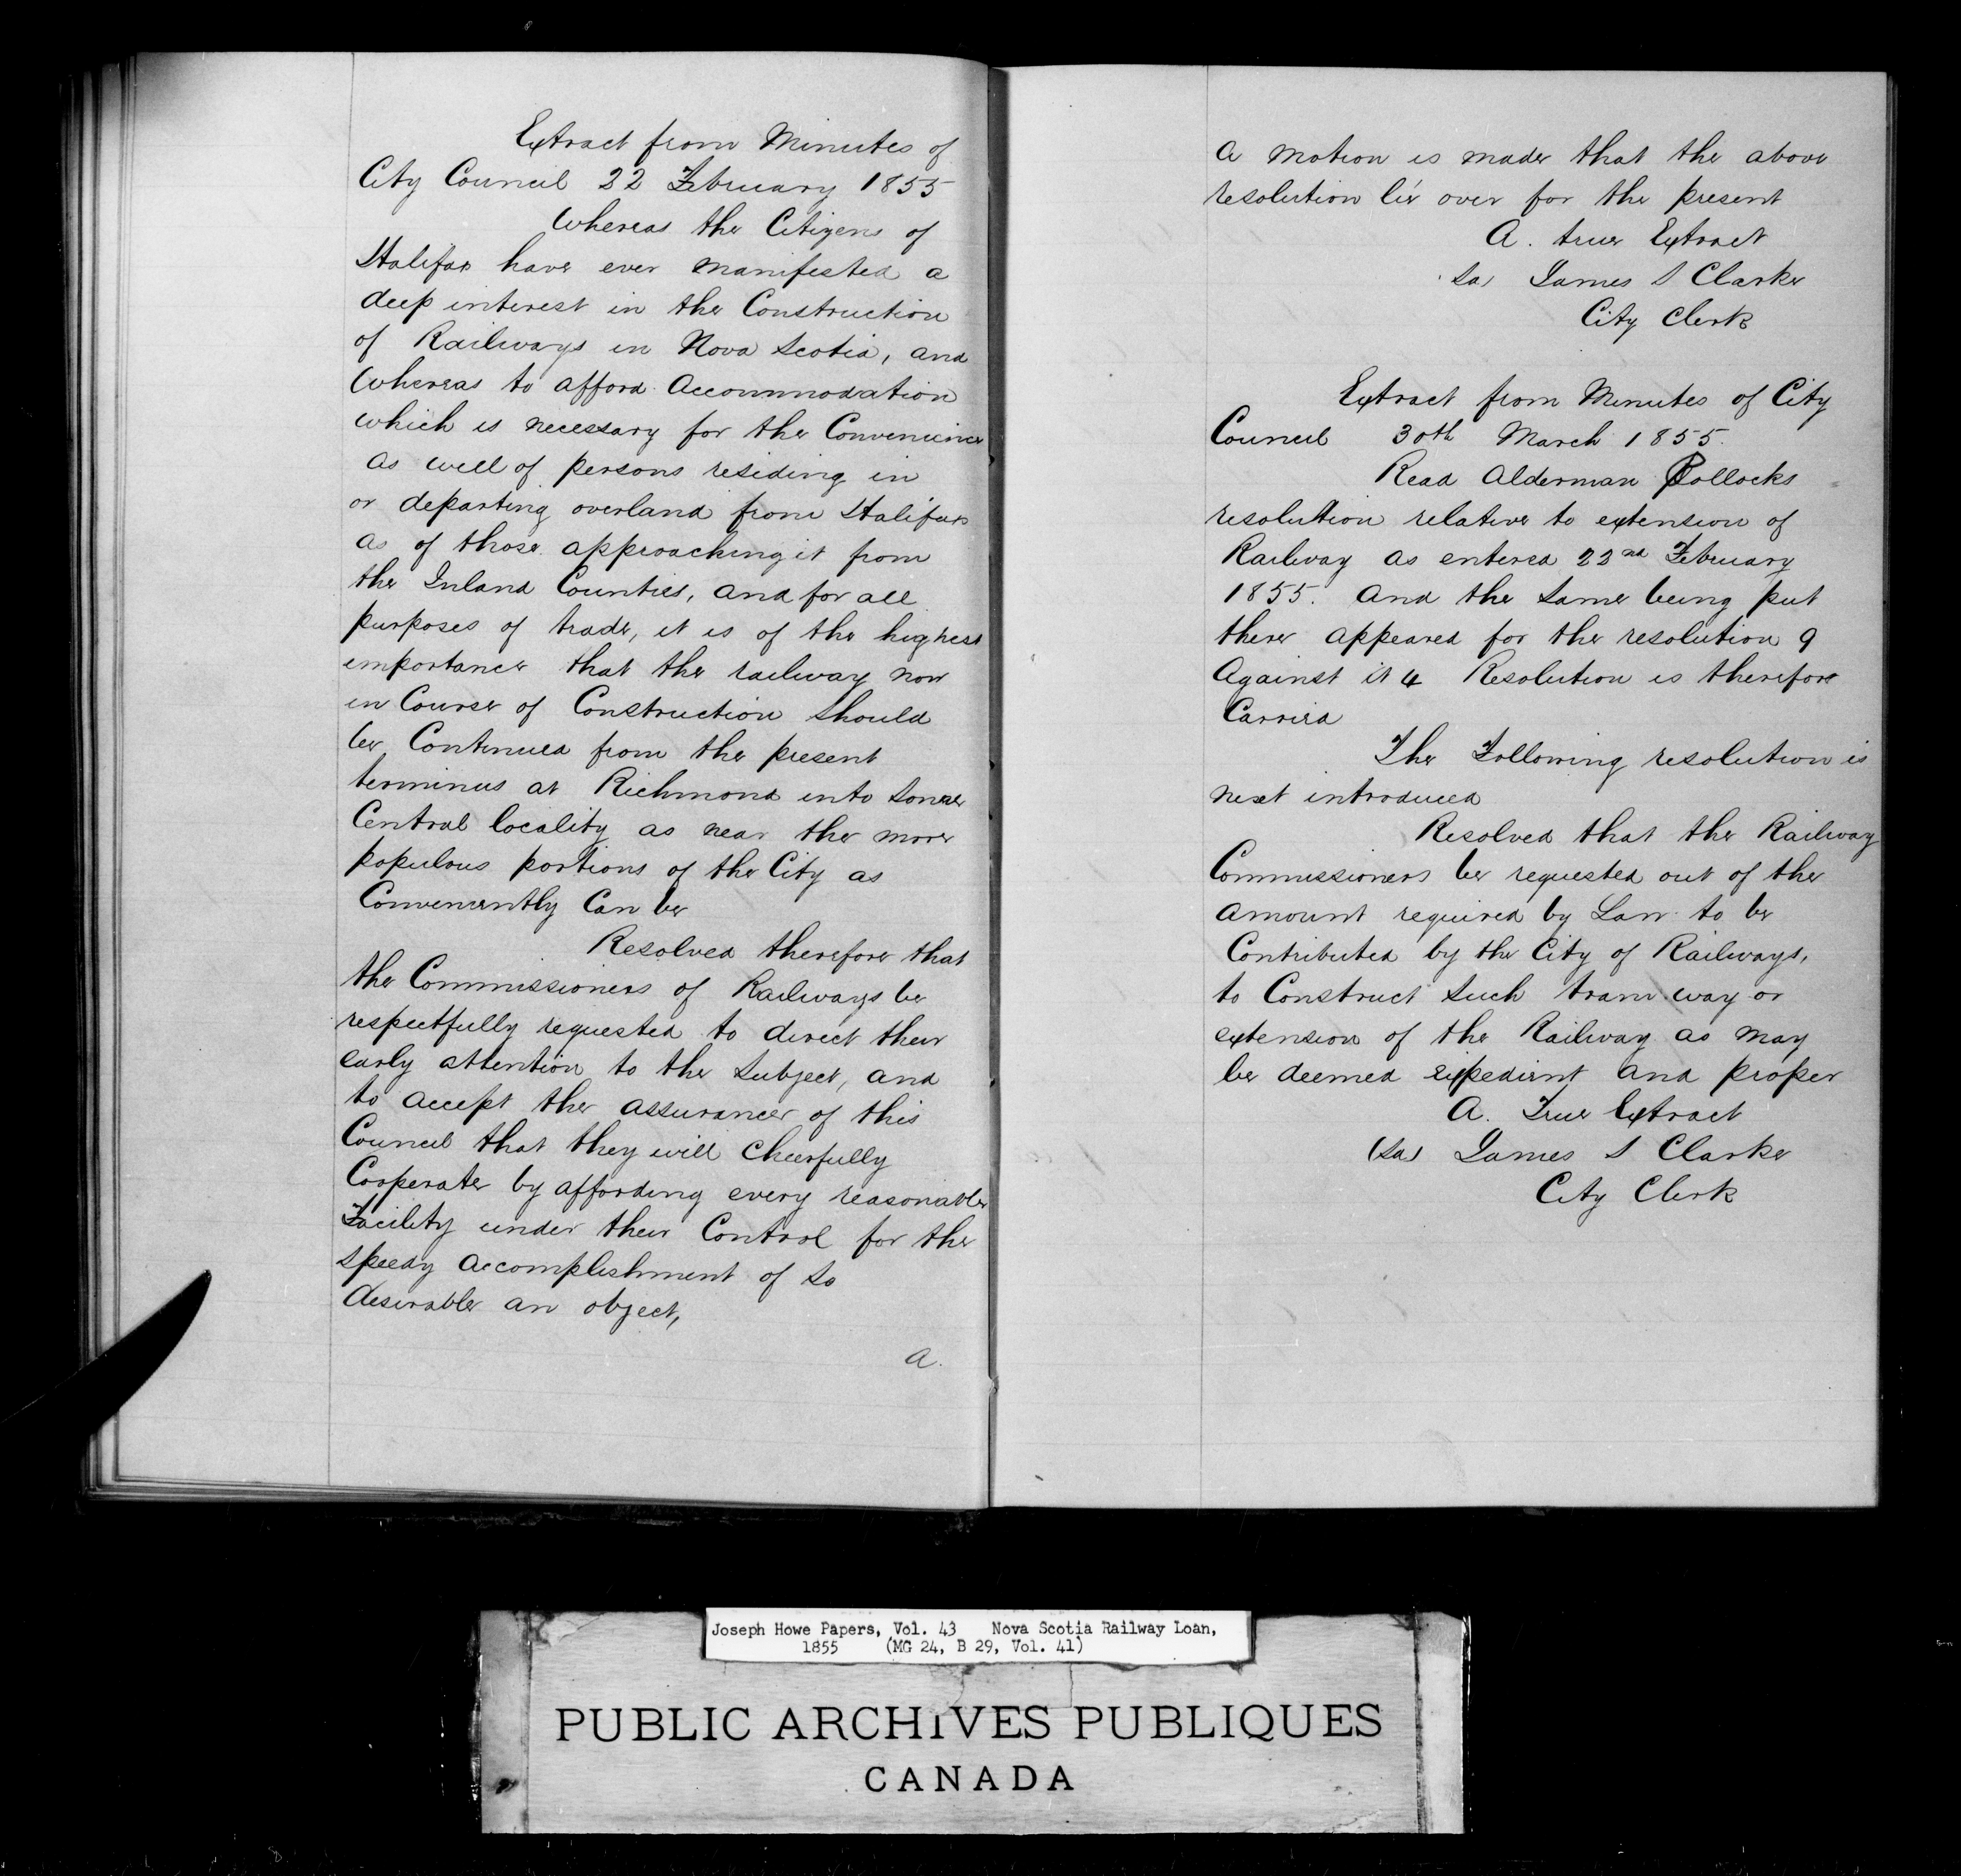 Extract from Minutes of
City Council 22 February 1855
Whereas the Citizens of
Halifax have ever manifested a
deep interest in the Construction
of Railways in Nova Scotia, and
Whereas to afford Accommodation
which is necessary for the Convenience
as well of persons residing in
or departing overland from Halifax
as of those approaching it from
the Inland Counties, and for all
purposes of trade, it is of the highest
importance that the railway now
in Course of Construction should
be Continued from the present
terminus at Richmond into some
Central locality as near the more
populous portions of the City as
Conveniently Can be
Resolved therefore that
the Commissioners of Railways be
respectfully requested to direct their
early attention to the Subject, and
to accept the assurance of this
Council that they will Cheerfully
Cooperate by affording every reasonable
Facility under their Control for the
speedy accomplishment of so
desirable an object,
A.
A motion is made that the above
resolution lie over for the present
A. true Extract
Sd) James S Clarke
City Clerk
Extract from Minutes of City
Council 30th March 1855.
Read Alderman Pollocks
resolution relative to extension of
Railway as entered 22nd February
1855. And the same being put
there appeared for the resolution 9
Against it 4 Resolution is therefore
Carried
The Following resolution is
next introduced
Resolved that the Railway
Commissioners be requested out of the
amount required by Law to be
Contributed by the City of Railways,
to Construct such tram way or
extension of the Railway as may
be deemed expedient and proper
A. True Extract
(Sd) James S Clarke
City Clerk
Joseph Howe Papers, Vol. 43 Nova Scotia Railway Loan,
1855 (MG 24, B 29, Vol. 41)
PUBLIC ARCHIVES PUBLIQUES
CANADA